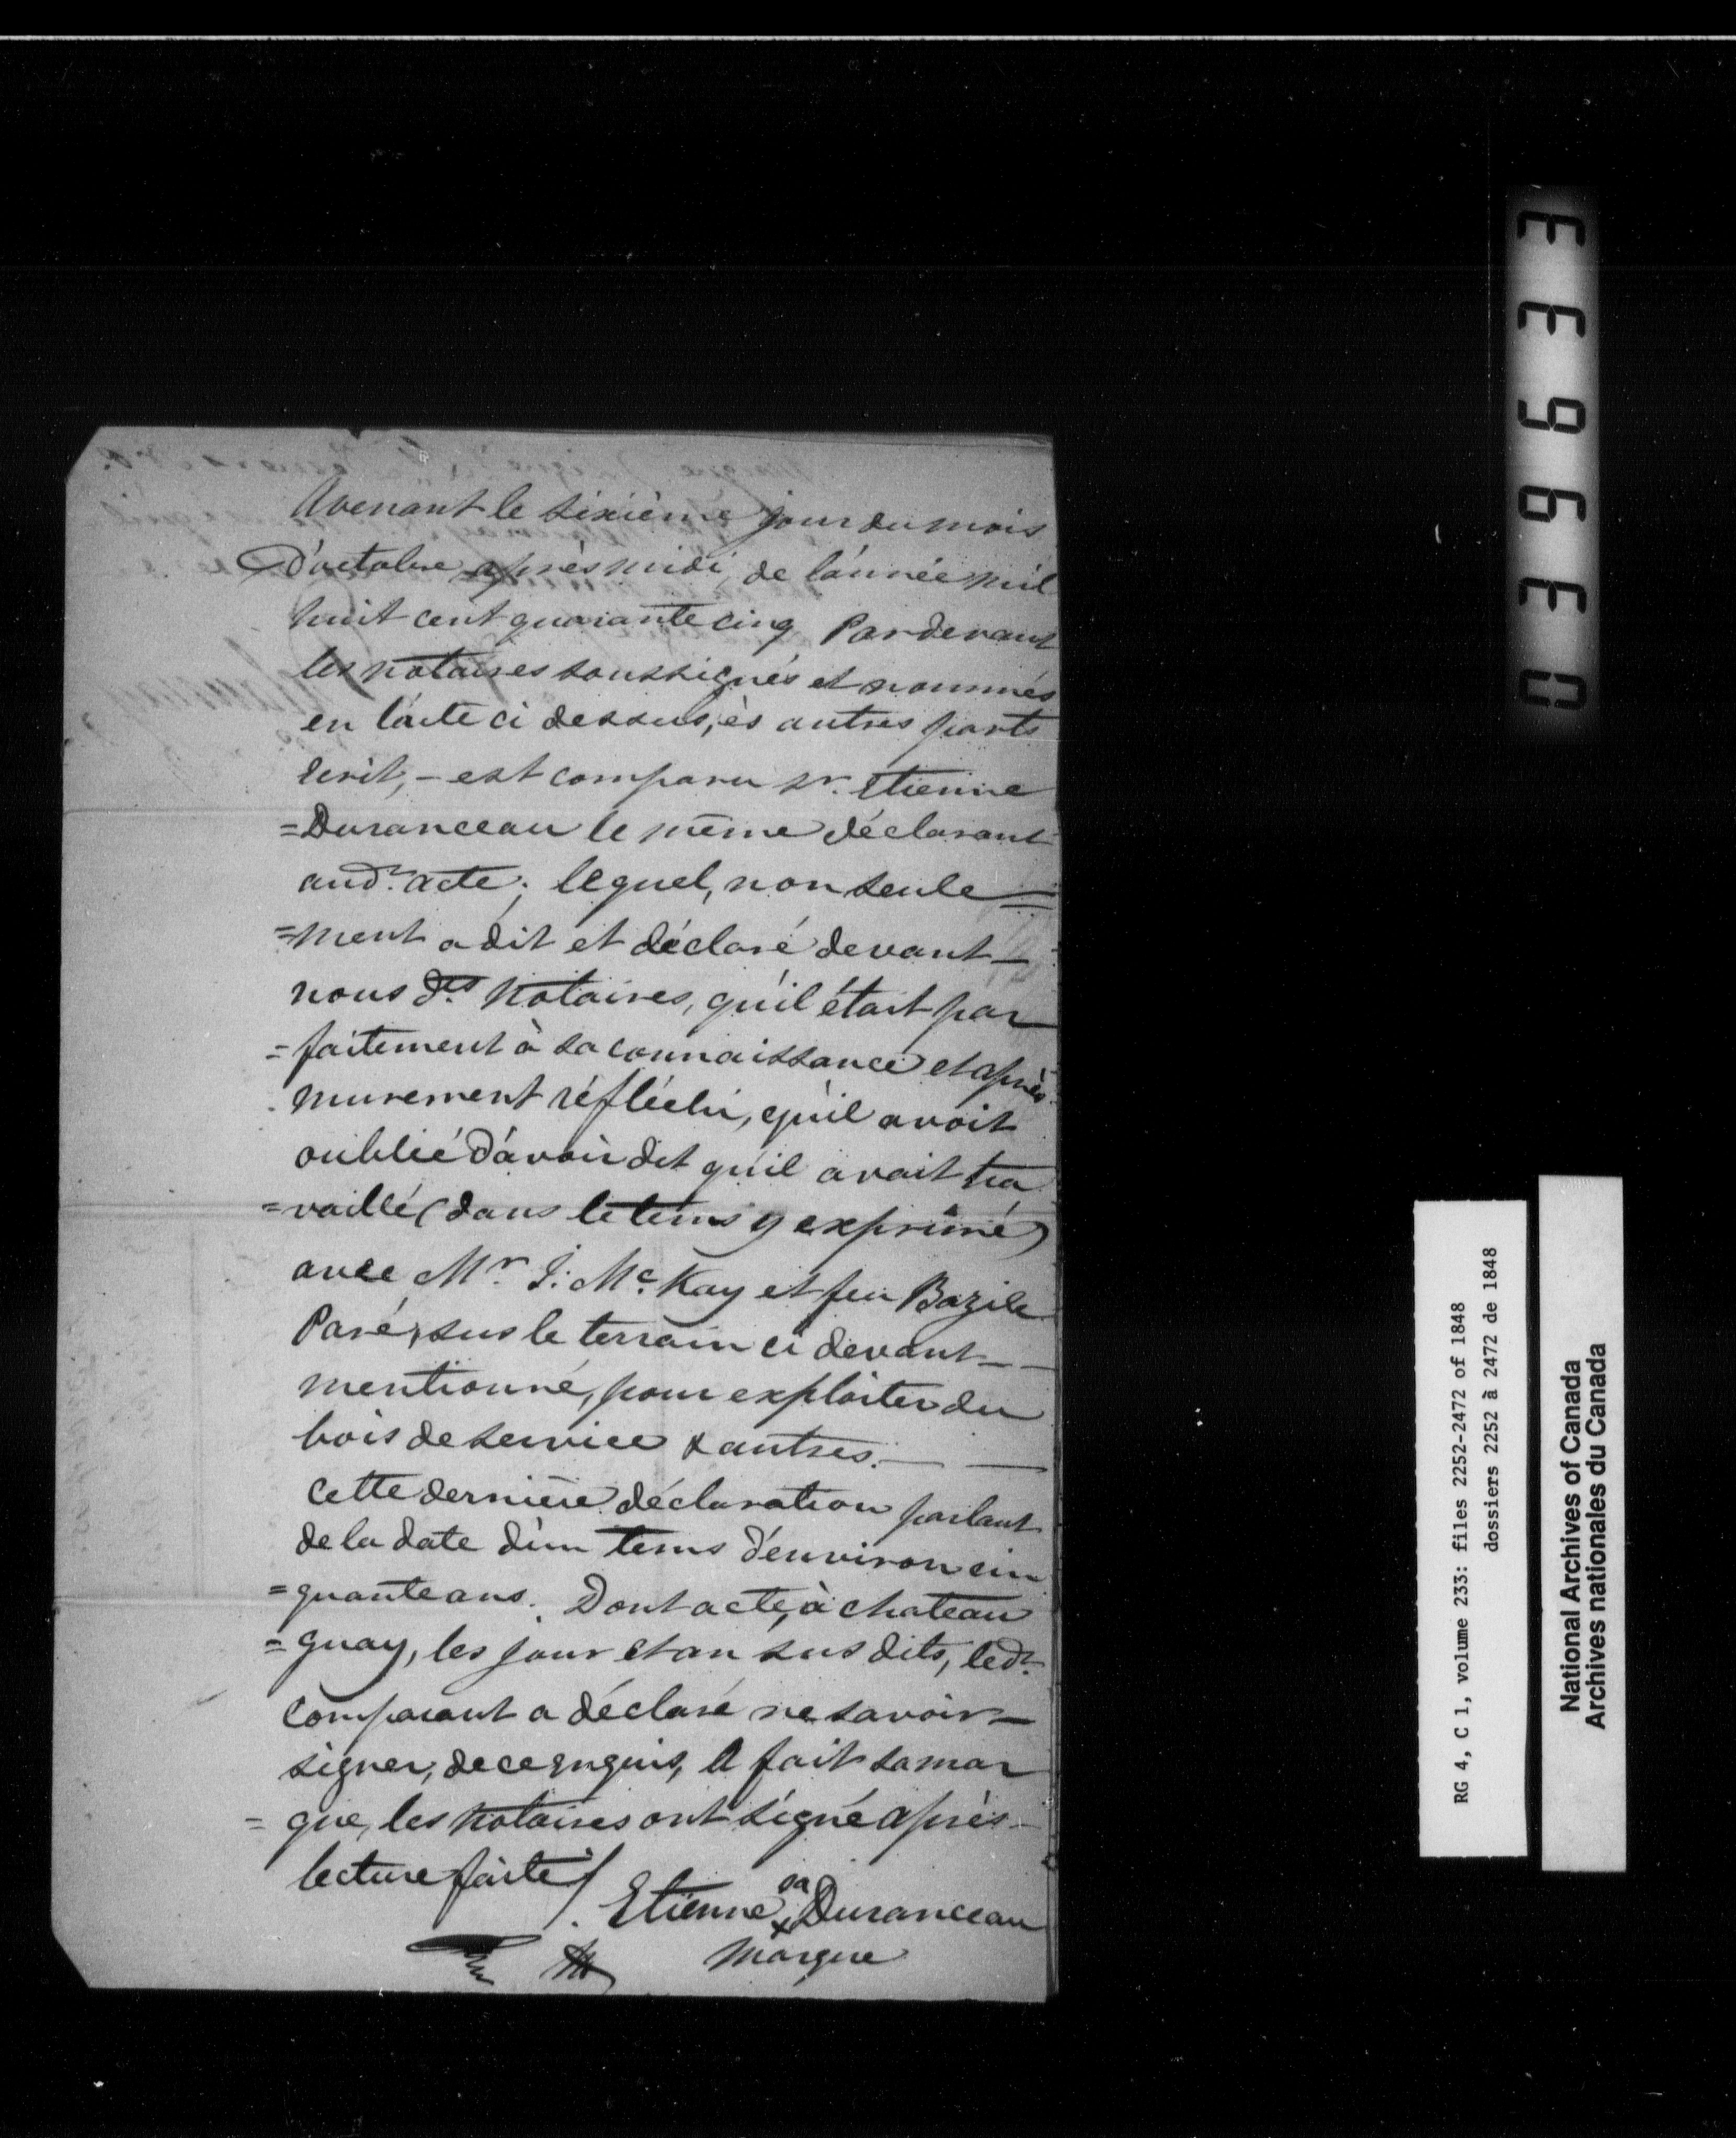 Avenant le sixième jour du mois
D'octobre après midi, de l'année mil
huit cent quarante cinq Pardevant
les notaires soussignés et nommés
en l'acte ci dessus, ès autres parts
écrit, – est comparu Sr. Etienne
=Duranceau le même déclarant
audt. acte; lequel, non seule=
=ment a dit et déclaré devant –
nous dts. Notaires, qu'il était par
=faitement à sa connaissance et après
murement réfléchi, qu'il avoit
oublié d'avoir dit qu'il avait tra
=vaillé (dans le tems y exprimé)
avec Mr. J. Mc. Kay et feu Bazile
Paré, sus le terrain ci devant – –
mentionné, pour exploiter du
bois de service & autres. – –
Cette dernière déclaration parlant
de la date d'un tems d'environ cin
=quante ans. Dont acte, à chateau
=guay, les jour et an sus dits, ledt.
Comparant a déclaré ne savoir –
signer, de ce enquis, a fait sa mar
=que, les notaires ont signé après –
lecture faite /.
Etienne sa x Duranceau
marque
033969 33
RG 4, C 1, volume 233: files 2252-2472 of 1848
dossiers 2252 à 2472 de 1848
National Archives of Canada
Archives nationales du Canada